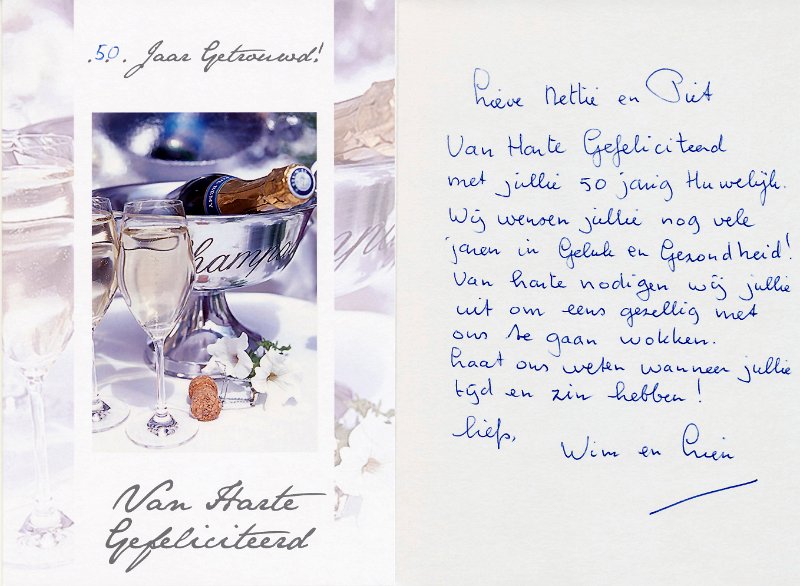 .50. Jaar Getrouwd!
Champa
Van Harte
Gefeliciteerd
Lieve Nettie en Piet
Van Harte Gefeliciteerd
met jullie 50 jarig Huwelijk.
Wij wensen jullie nog vele
jaren in Geluk en Gezondheid!
Van harte nodigen wij jullie
uit om eens gezellig met
ons te gaan wokken.
Laat ons weten wanneer jullie
tijd en zin hebben!
liefs,
Wim en Lien